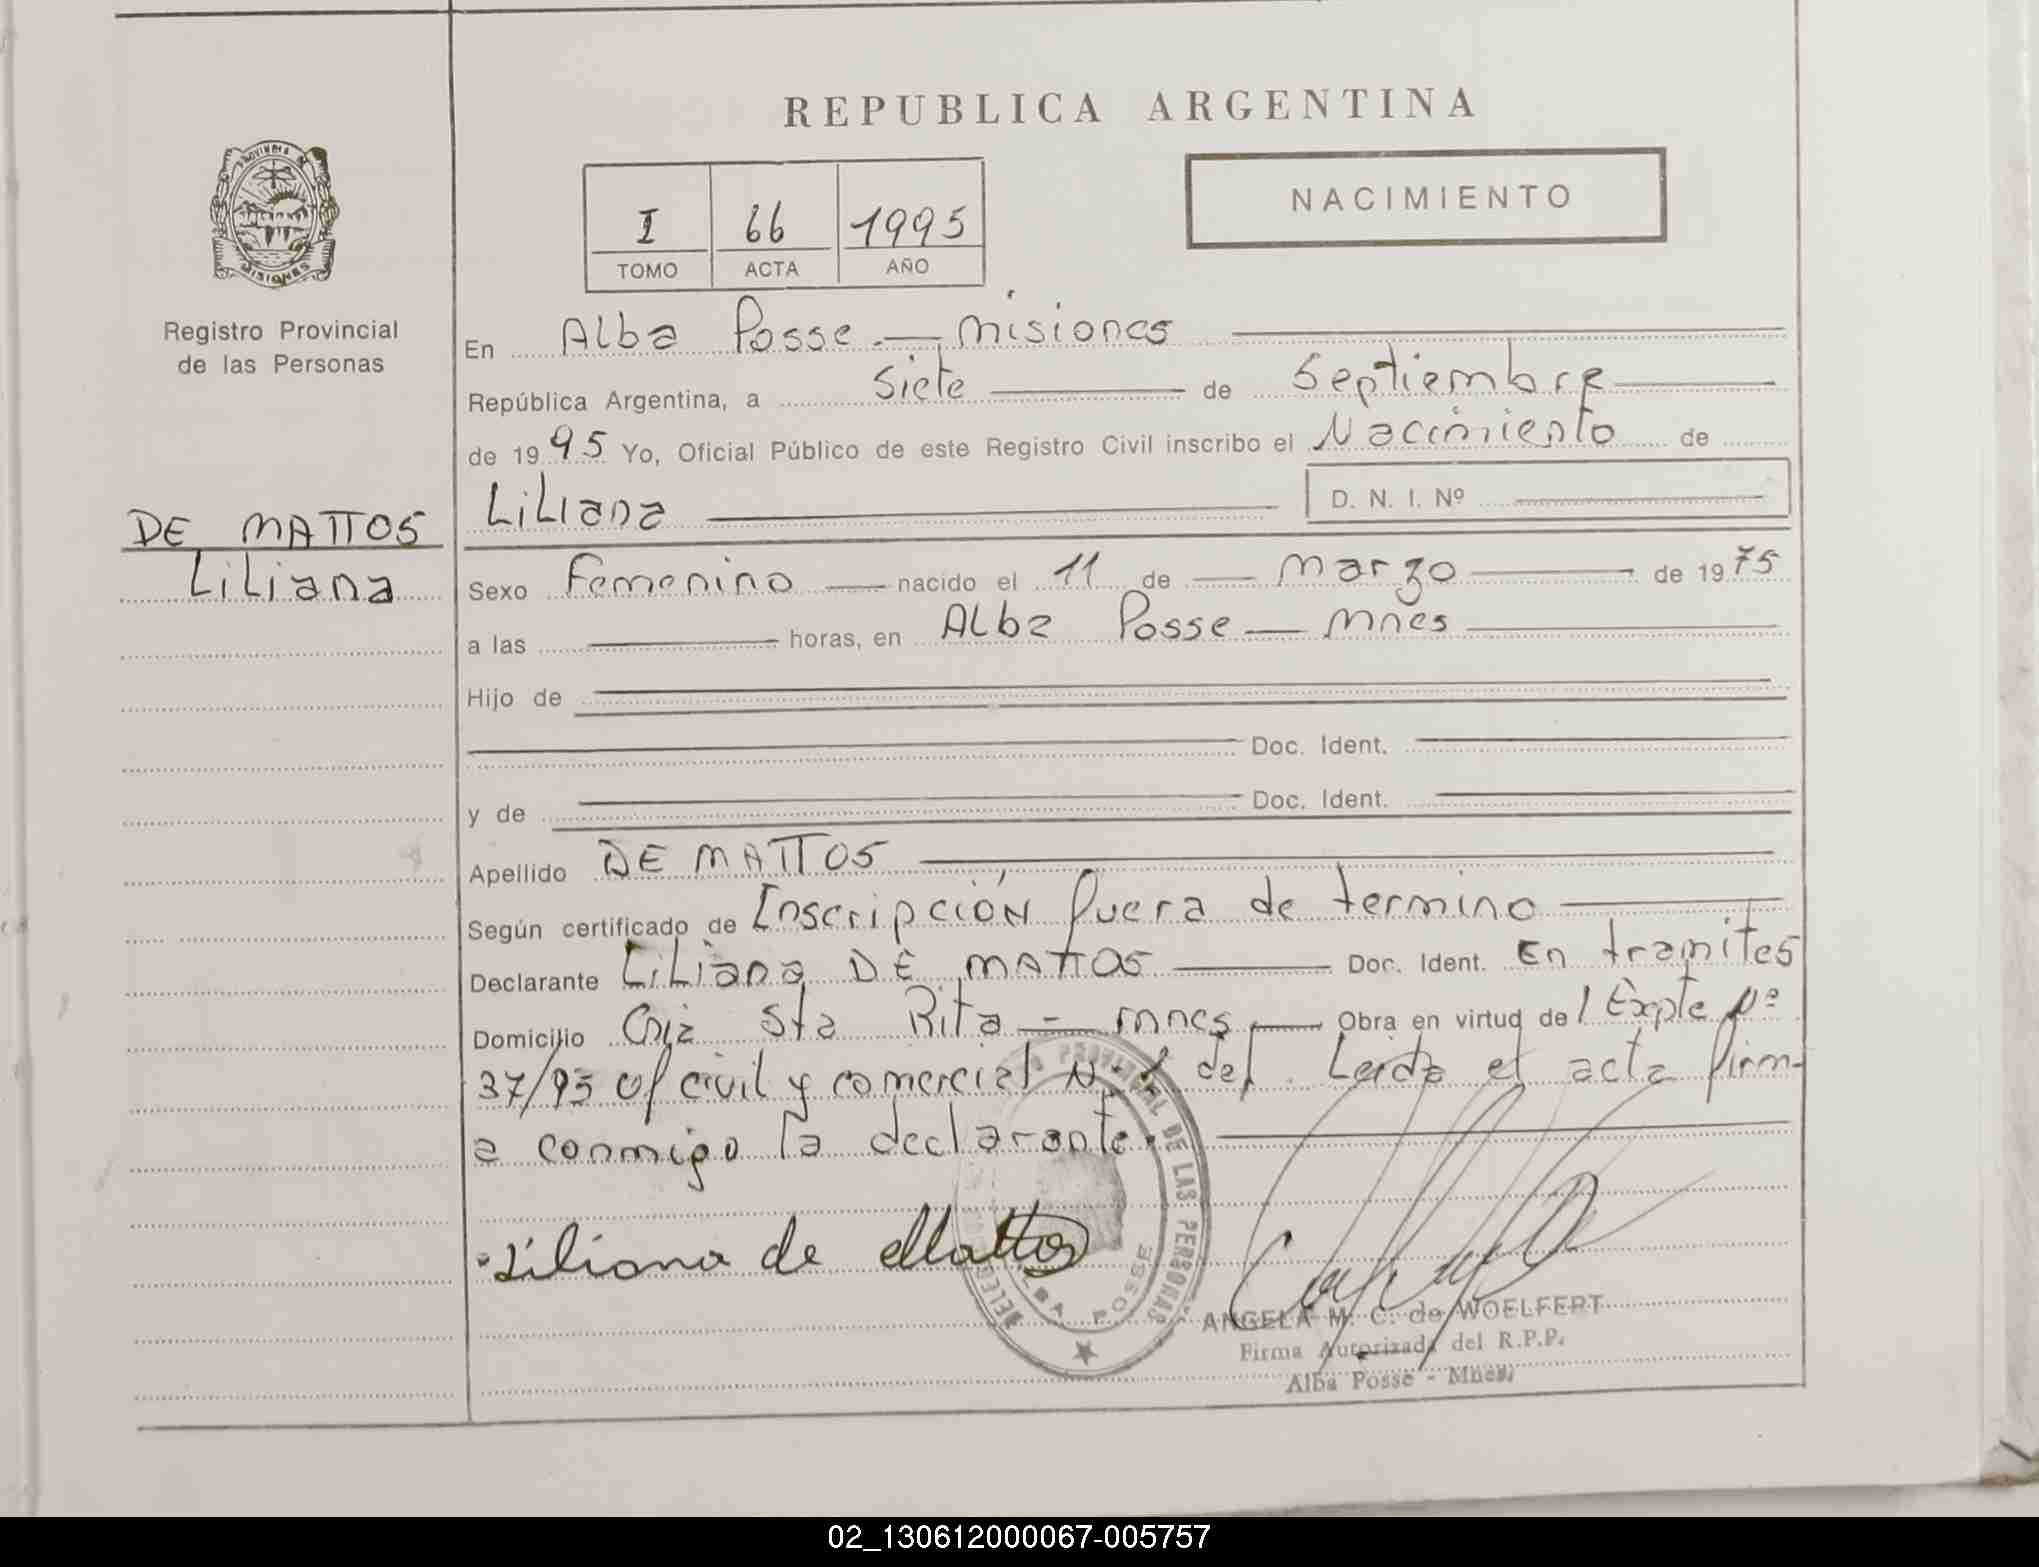 REPUBLICA ARGENTINA
PROVINCIA DE
MISIONES
Registro Provincial
de las Personas
I 66 1995
TOMO ACTA AÑO
NACIMIENTO
DE MATTOS
Liliana
En Alba Posse — Misiones
República Argentina, a siete de Septiembre
de 1995 Yo, Oficial Público de este Registro Civil inscribo el Nacimiento de
Liliana D. N. I. Nº
Sexo Femenino nacido el 11 de Marzo de 1975
a las horas, en Alba Posse — Mnes
Hijo de
Doc. Ident.
y de Doc. Ident.
Apellido DE MATTOS
Según certificado de Inscripción fuera de termino
Declarante Liliana DE MATTOS Doc. Ident. En tramites
Domicilio Sta Rita — Mnes Obra en virtud de l Expte Nº
37/95 civil y comercial Leida el acta firm-
a conmigo la declarante.
Liliana de Mattos
PROVINCIAL DE LAS PERSONAS
ALBA POSSE
ANGELA M. C. de WOELFERT
Firma Autorizada del R.P.P.
Alba Posse - Mnes.
02_130612000067-005757